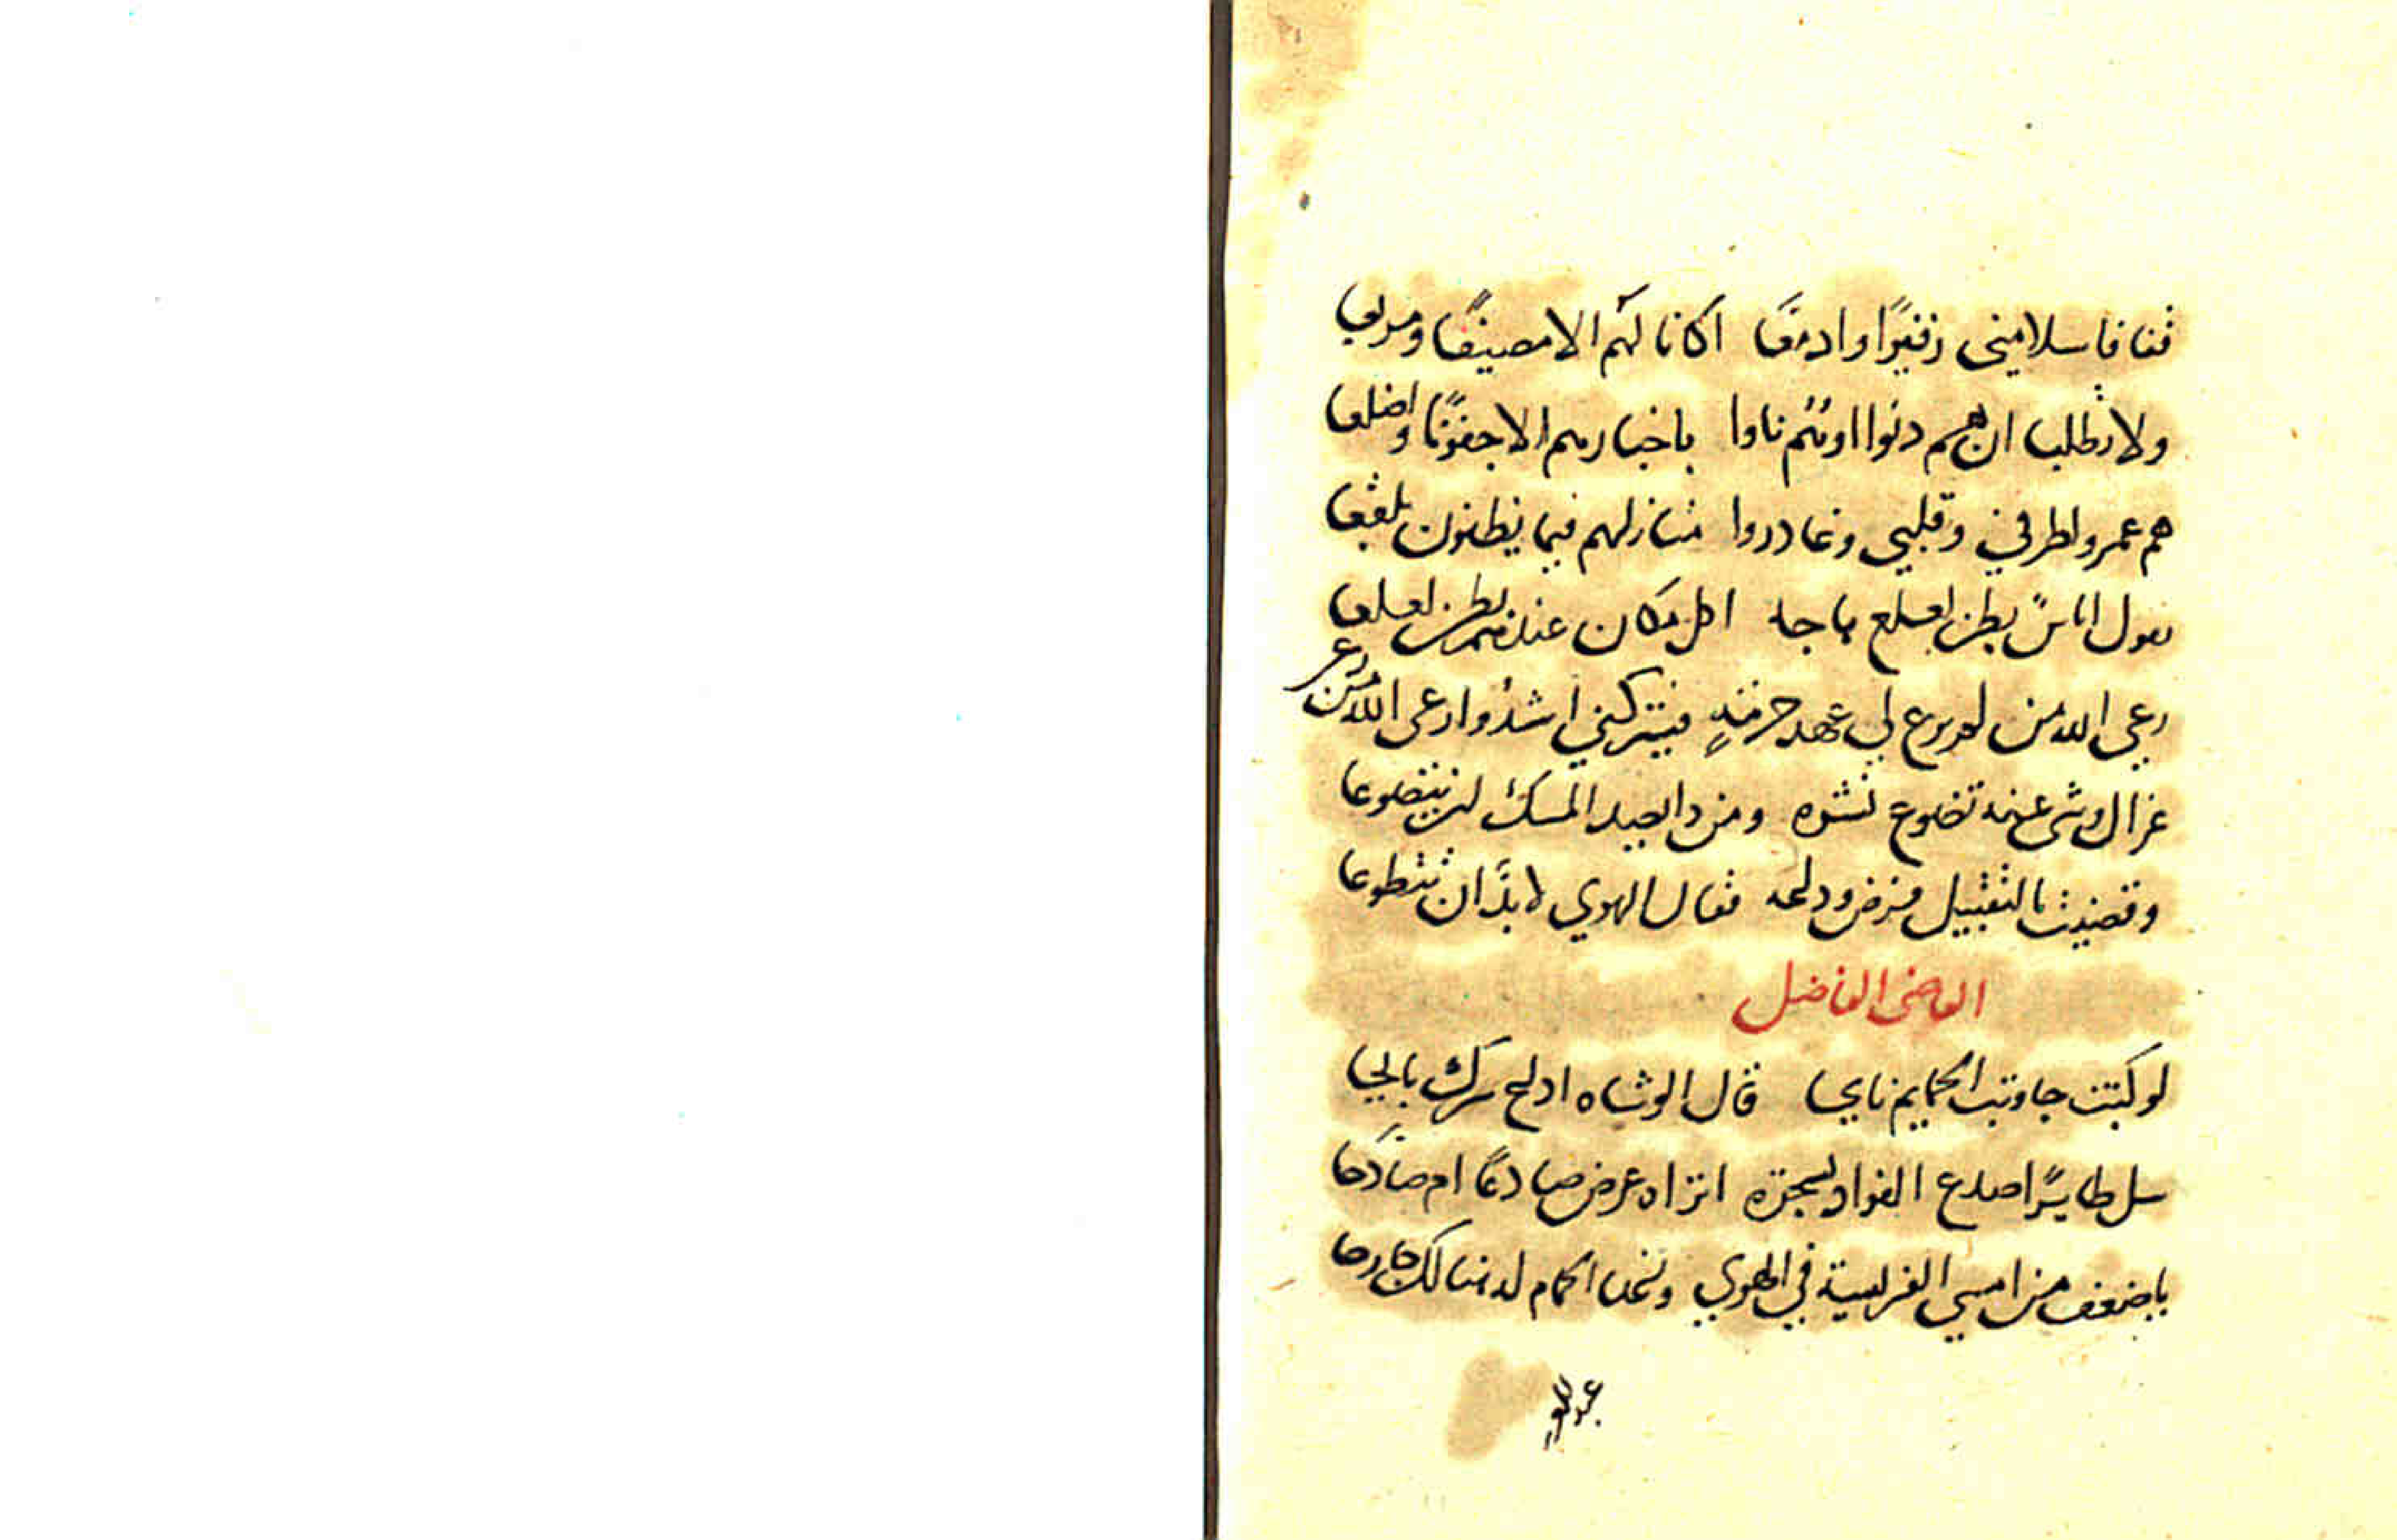 قفا فاسلا مني زفيرًا وادمعًا اكانا لهم الا مصيفًا ومربعا
ولا تطلبا ان هم دنوا او نئم ناوا باخبارهم الا جفونًا واضلعا
هم عمروا طرفي وقلبي وغادروا منازلهم فيما يظنون بلقعا
يقول اناسٌ بطن لعلع هاجه اكل مكان عندهم بطن لعلعا
رعى الله من لم يرع لي عهد حرمةٍ فيتركني اشدُو ادعى الله من رعى
غزال وشى عنه تضوع نشره ومن ذا يصيد المسك لن يتضوعا
وقضيت بالتقبيل فرض ودلعه فقال الهوي لا بدَّ ان تتطوعا
القاضى الفاضل
لو كنت جاوبت الحمايم نايحا قال الوشاه اذلح سرك بايحا
سل طايرًا صدع الفواد بسجعه اتراه عرض صادعًا ام صادحا
يا ضعف من امسي الفريسة في الهوي وغدا الحمام له هنالك جارحا